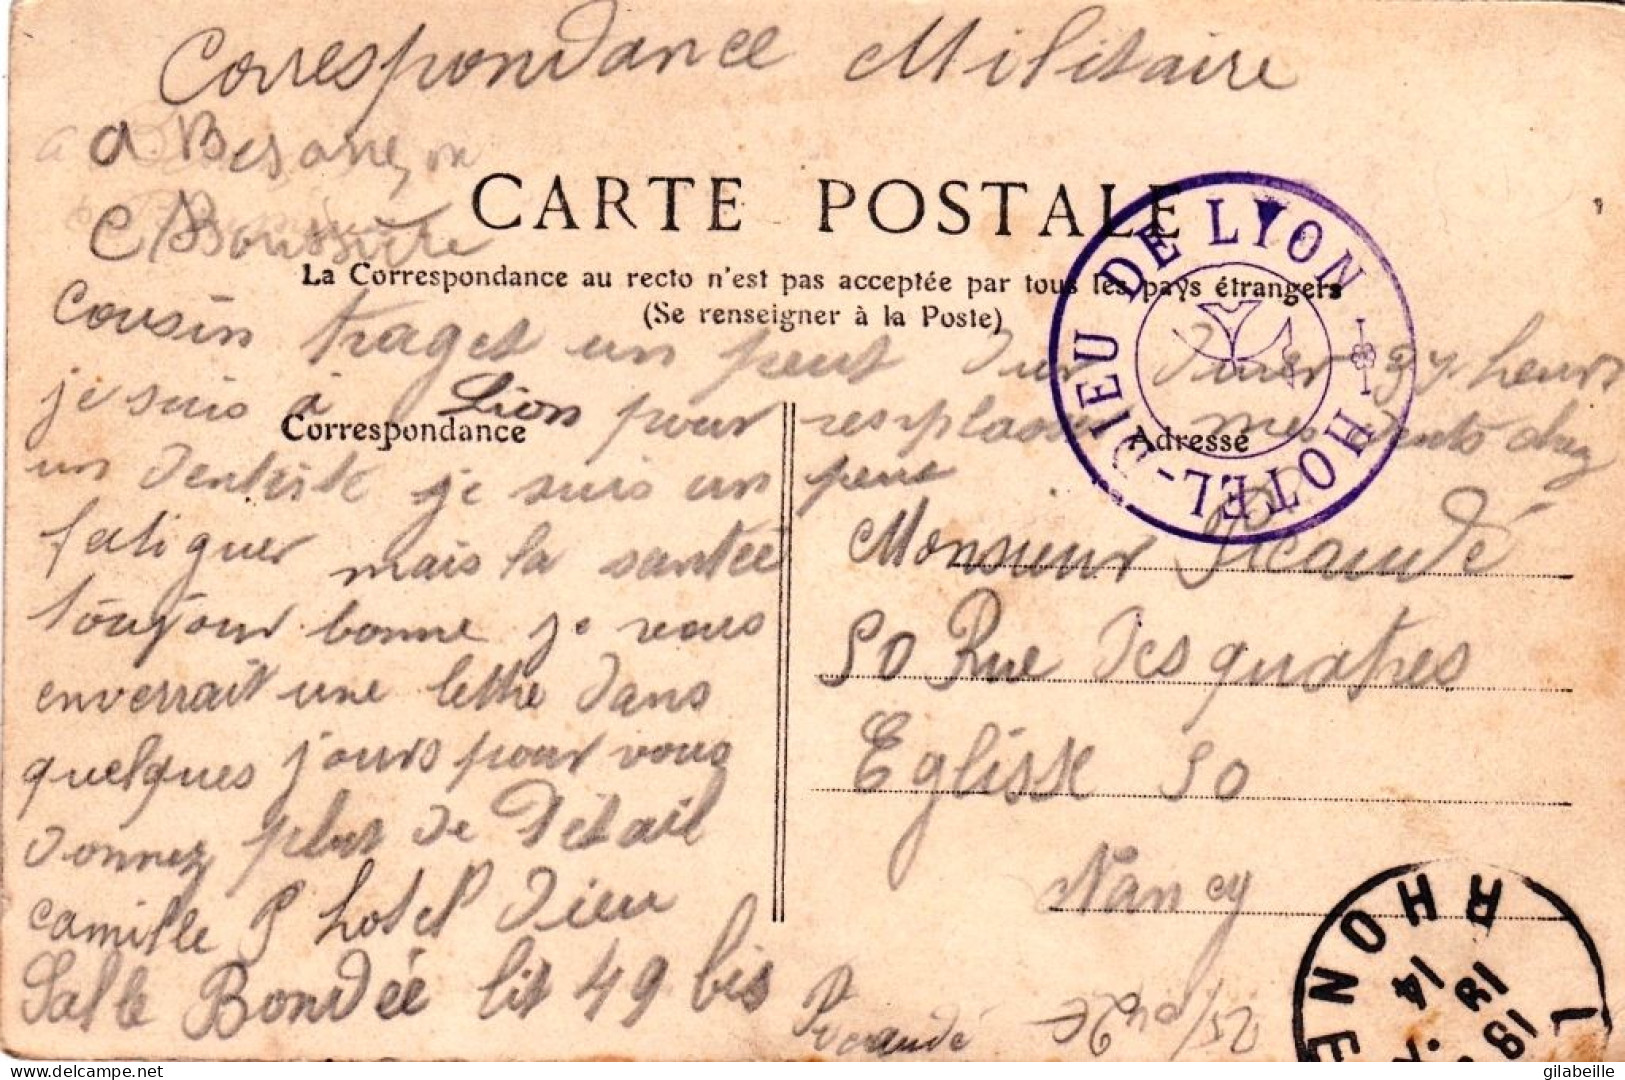 Correspondance Militaire
a Besançon
CARTE POSTALE
La Correspondance au recto n'est pas acceptée par tous les pays étrangers
(Se renseigner à la Poste)
HOTEL-DIEU DE LYON
Cousin traget un peut dur 37 heurs
je suis à Lion pour resplasser mes dents chez
un dentiste je suis un peut
Correspondance
Adresse
fatiguer mais la santée
toujour bonne je vous
enverrait une lettre dans
quelques jours pour vous
donnez plus de Détail
Camille P hotel Dieu
Salle Bondée lit 49 bis
Monsieur
50 Rue des quatres
Eglisse 50
Nancy
RHONE
18
14
delcampe.net
gilabeille